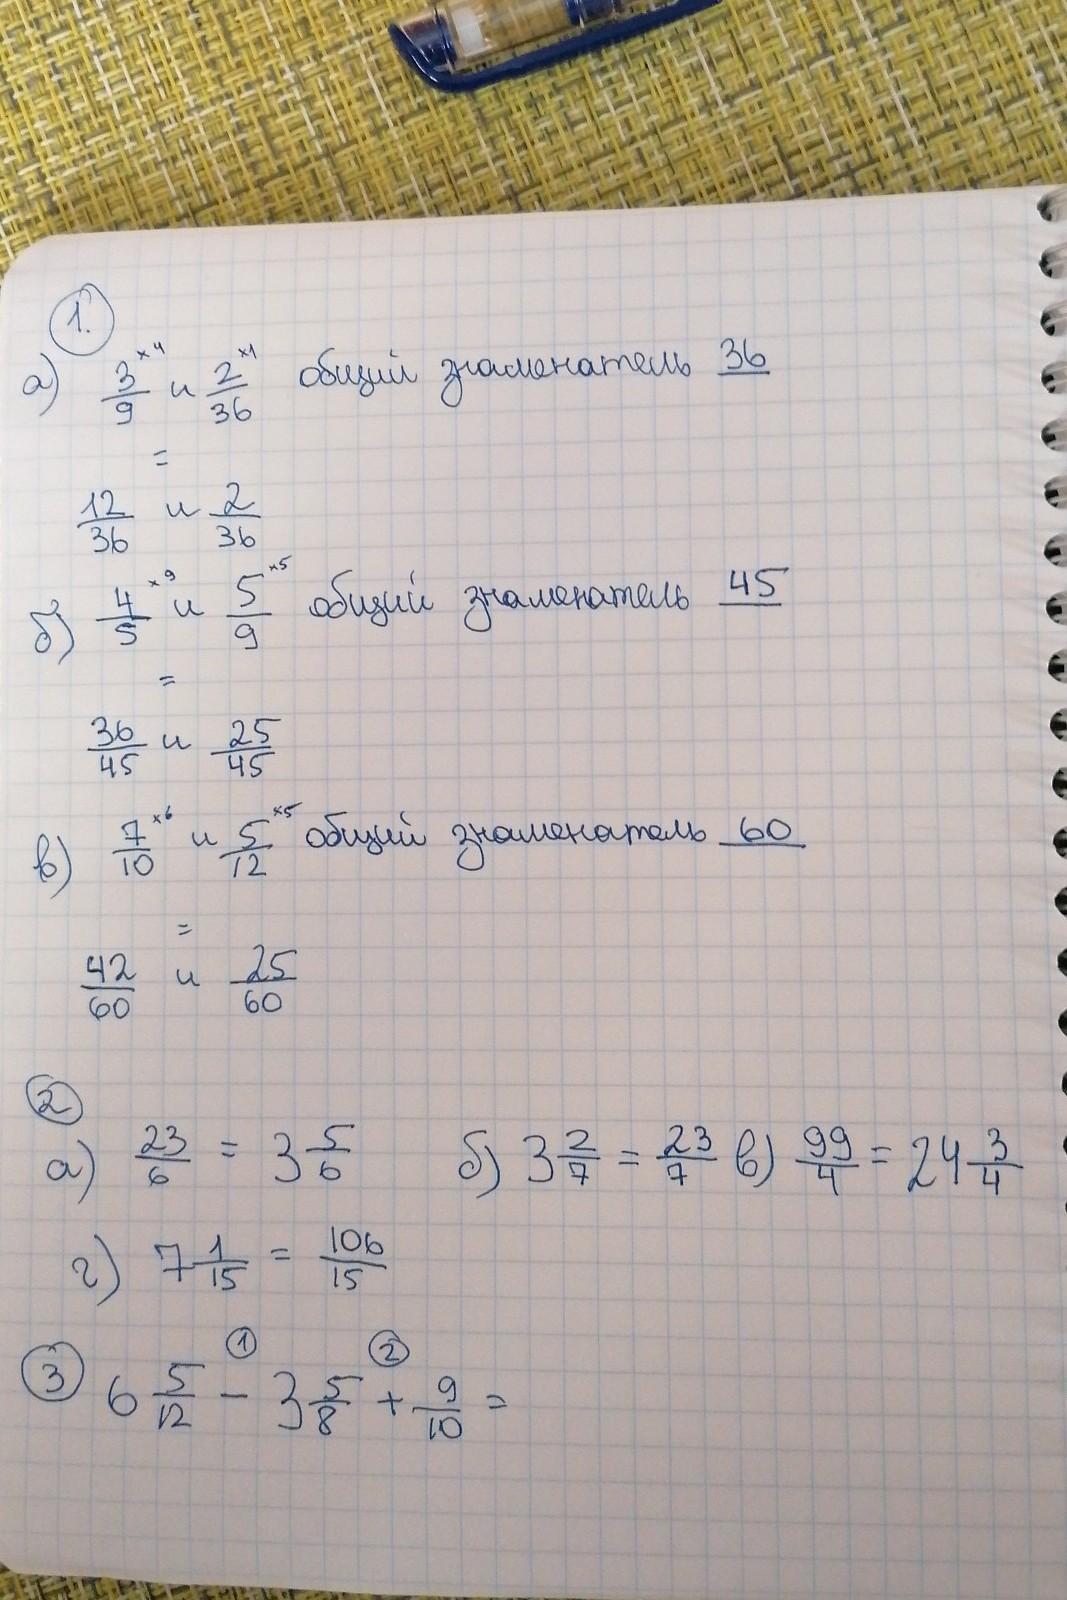 1.
а) 3/9 ×4 и 2/36 ×1 общий знаменатель 36
=
12/36 и 2/36
б) 4/5 ×9 и 5/9 ×5 общий знаменатель 45
=
36/45 и 25/45
в) 7/10 ×6 и 5/12 ×5 общий знаменатель 60
=
42/60 и 25/60
2
а) 23/6 = 3 5/6 б) 3 2/7 = 23/7 в) 99/4 = 24 3/4
г) 7 1/15 = 106/15
1 2
3 6 5/12 - 3 5/8 + 9/10 =